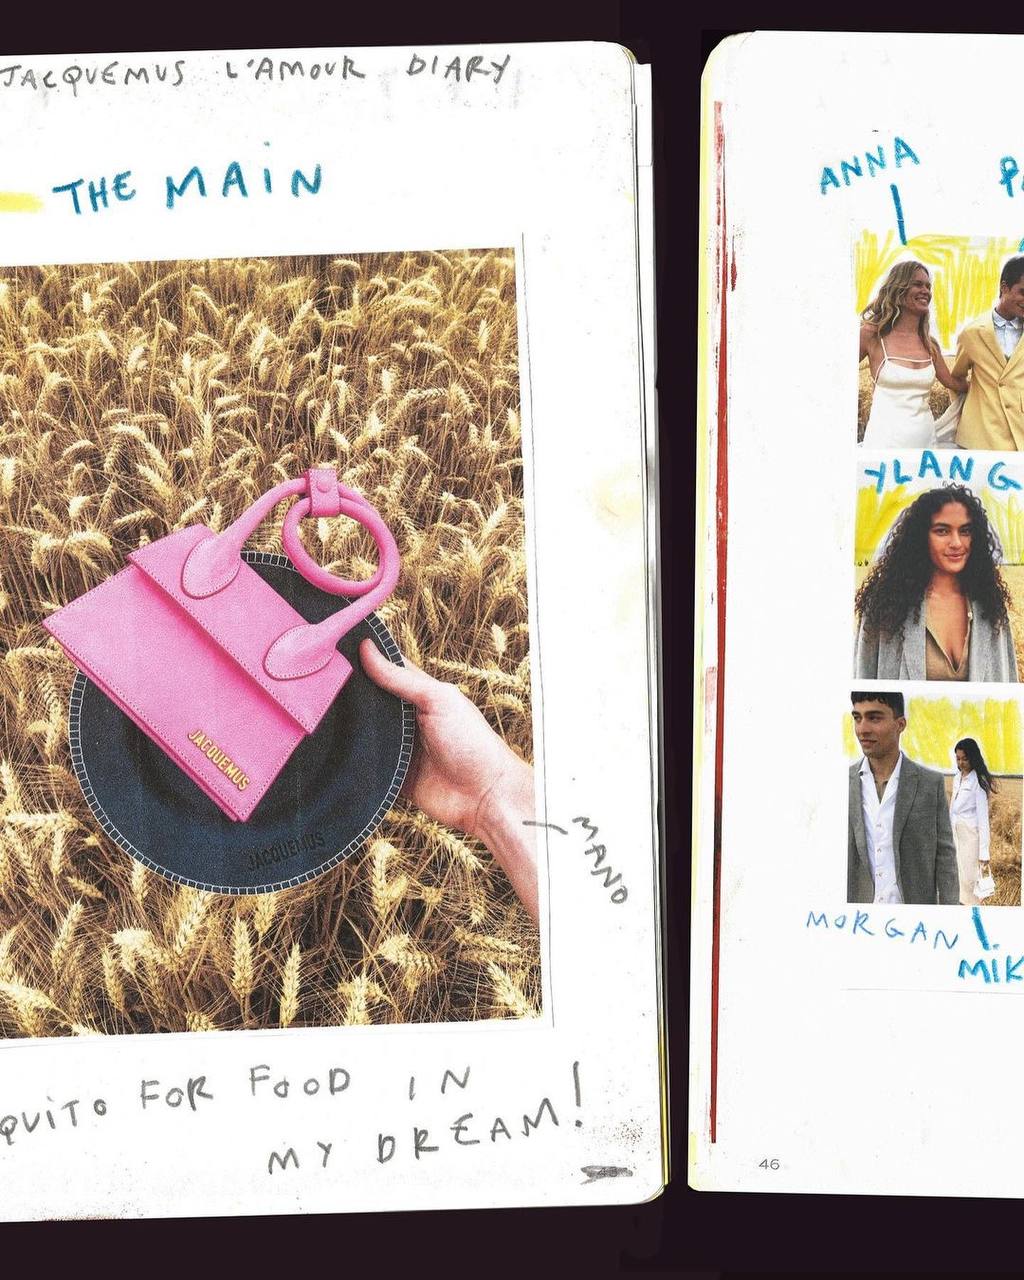 JACQUEMUS L'AMOUR DIARY
THE MAIN
JACQUEMUS
JACQUEMUS
MANO
QUITO FOR FOOD IN
MY DREAM!
ANNA
YLANG
MORGAN
MIK
46